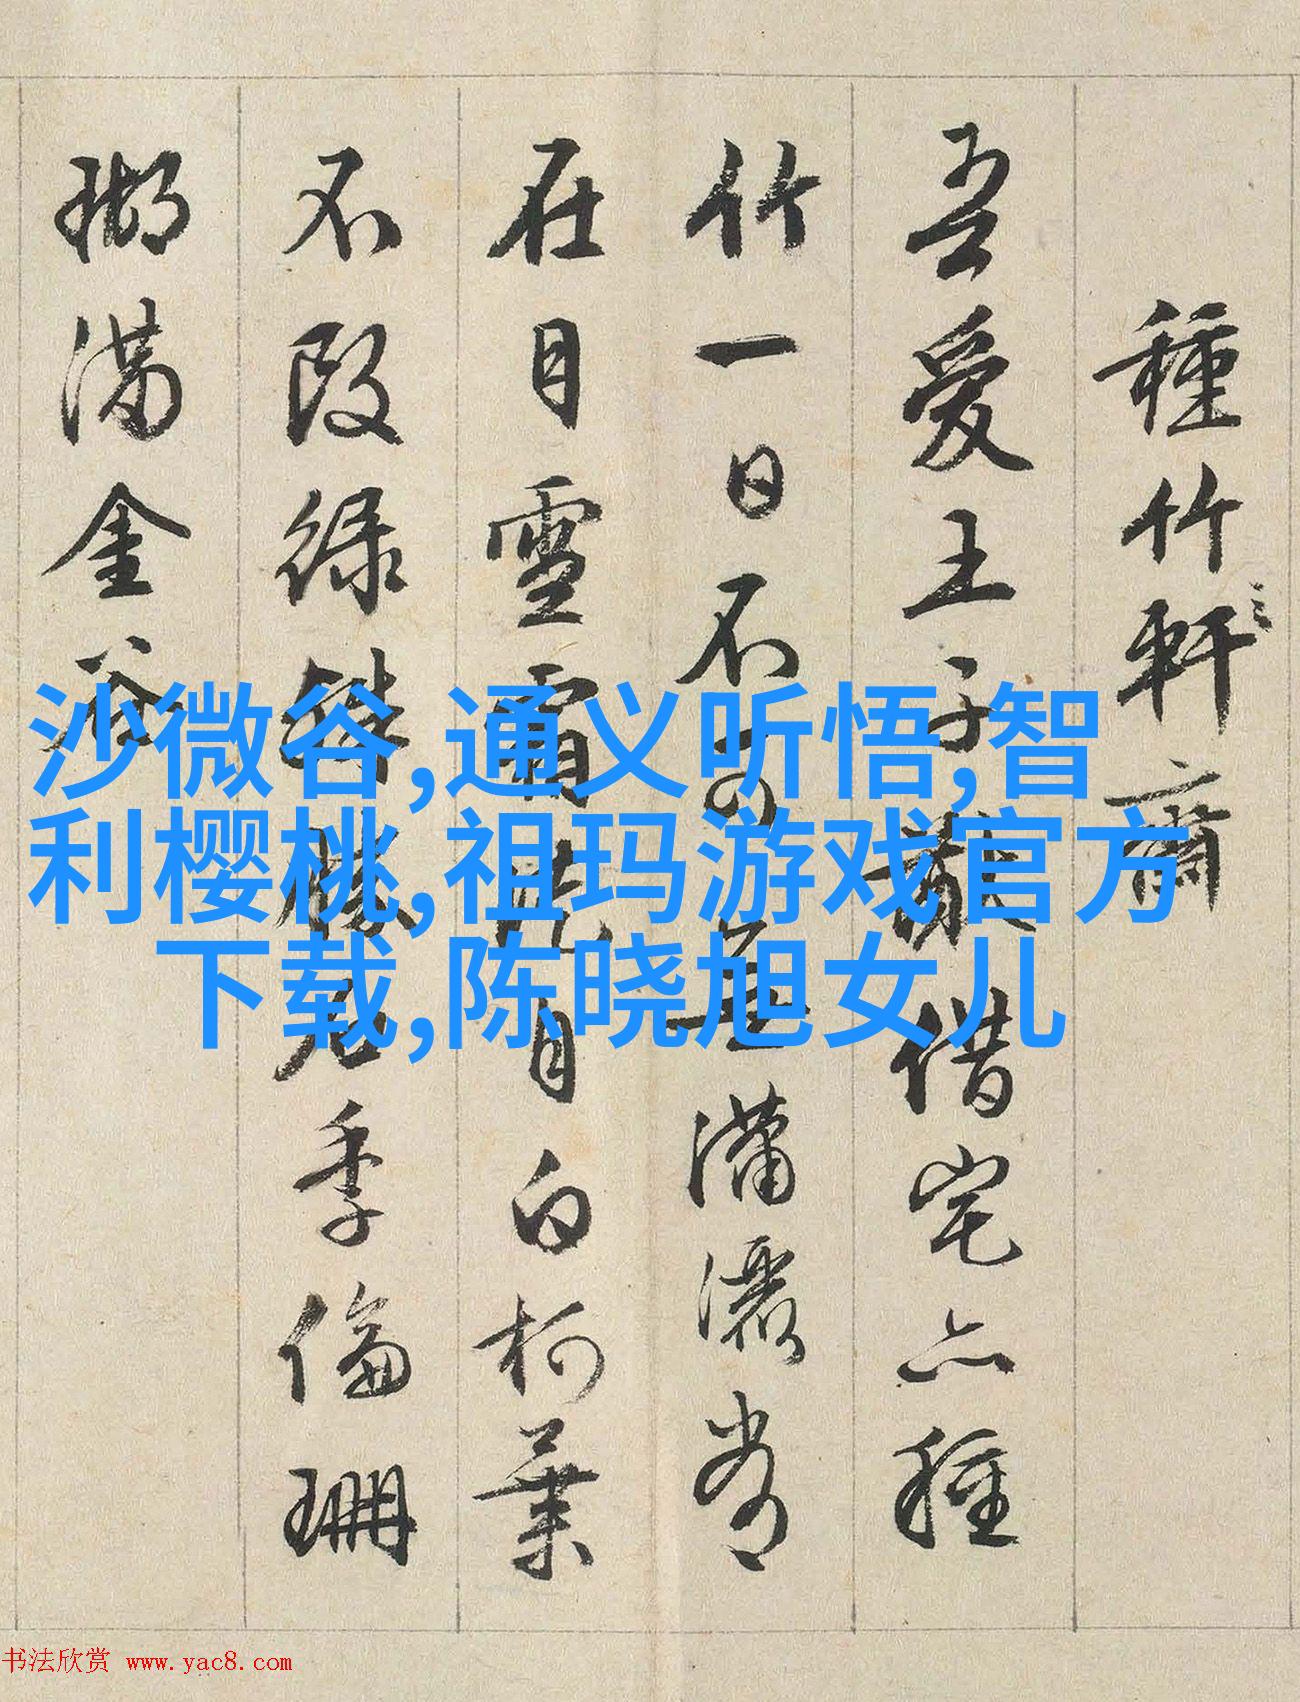 種竹軒齋
吾愛王子猷借宅亦種
竹一日不可無瀟灑常
在目雪霜自白柯葉
不改綠勝石季倫珊
瑚滿金谷
沙微谷,通义听悟,智
利樱桃,祖玛游戏官方
下载,陈晓旭女儿
书法欣赏 www.yac8.com